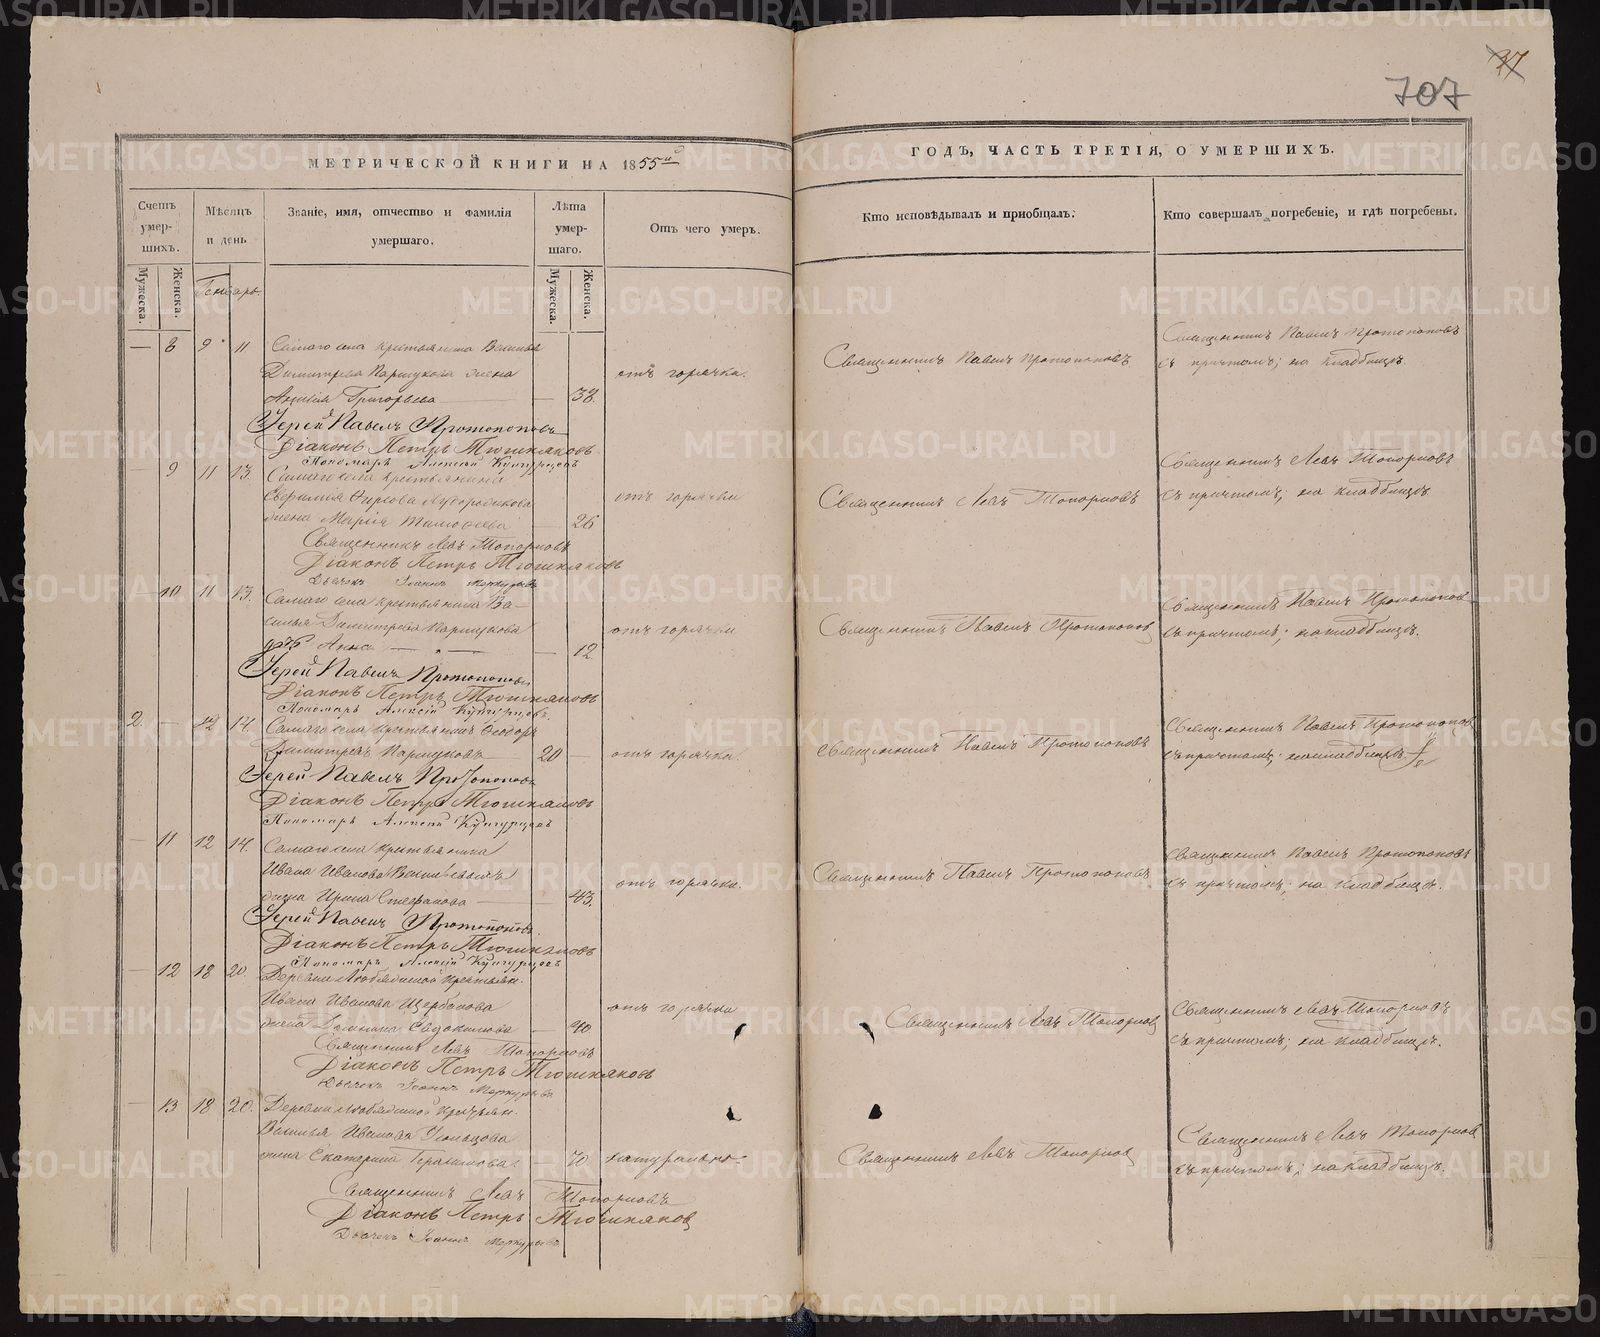 37
707
МЕТРИЧЕСКОЙ КНИГИ НА 1855ый
ГОДЪ, ЧАСТЬ ТРЕТІЯ, О УМЕРШИХЪ.
Счетъ умер-шихъ.
Мѣсяцъ и день
Званіе, имя, отчество и фамилія умершаго.
Лѣта умер-шаго.
Отъ чего умеръ.
Кто исповѣдывалъ и пріобщалъ.
Кто совершалъ погребеніе, и гдѣ погребены.
Мужеска. Женска.
Мужеска. Женска.
Генварь.
— 8 9 11 Самаго села крестьянина Василья
Димитрева Паршукова жена
Григорьева — 38.
отъ горячки.
Священникъ Павелъ Протопоповъ
Священникъ Павелъ Протопоповъ
съ причтомъ; на кладбищѣ.
Іерей Павелъ Протопоповъ
Діаконъ Петръ Тюшняковъ
Пономарь Алексій Кунгурцевъ
— 9 11 13. Самаго села крестьянина
жена Марія Тимофеева — 26
отъ горячки
Священникъ Левъ Топорковъ
Священникъ Левъ Топорковъ
съ причтомъ; на кладбищѣ
Священникъ Левъ Топорковъ
Діаконъ Петръ Тюшняковъ
Дьячекъ Іоаннъ Меркурьевъ
— 10 11 13. Самаго села крестьянина Ва-
силья Димитрева Паршукова
дочь Анна — 12.
отъ горячки
Священникъ Павелъ Протопоповъ
Священникъ Павелъ Протопоповъ
съ причтомъ; на кладбищѣ.
Іерей Павелъ Протопоповъ
Діаконъ Петръ Тюшняковъ
Пономарь Алексій Кунгурцевъ
2. — 12 14. Самаго села крестьянинъ Феодоръ
Димитревъ Паршуковъ 20 —
отъ горячки.
Священникъ Павелъ Протопоповъ
Священникъ Павелъ Протопоповъ
съ причтомъ; на кладбищѣ.
Іерей Павелъ Протопоповъ
Діаконъ Петръ Тюшняковъ
Пономарь Алексій Кунгурцевъ
— 11 12 14. Самаго села крестьянина
Ивана Иванова
жена Ирина Стефанова — 43.
отъ горячки.
Священникъ Павелъ Протопоповъ
Священникъ Павелъ Протопоповъ
съ причтомъ; на кладбищѣ.
Іерей Павелъ Протопоповъ
Діаконъ Петръ Тюшняковъ
Пономарь Алексій Кунгурцевъ
— 12 18 20. Деревни крестьян.
Ивана Иванова Щербакова
жена Домнина Евдокимова — 40
отъ горячки
Священникъ Левъ Топорковъ
Священникъ Левъ Топорковъ
съ причтомъ; на кладбищѣ.
Священникъ Левъ Топорковъ
Діаконъ Петръ Тюшняковъ
Дьячекъ Іоаннъ Меркурьевъ
— 13 18 20. Деревни крестьян.
Василья Иванова
жена Екатерина Герасимова — 70
натурально.
Священникъ Левъ Топорковъ
Священникъ Левъ Топорковъ
съ причтомъ; на кладбищѣ.
Священникъ Левъ Топорковъ
Діаконъ Петръ Тюшняковъ
Дьячекъ Іоаннъ Меркурьевъ
METRIKI.GASO-URAL.RU